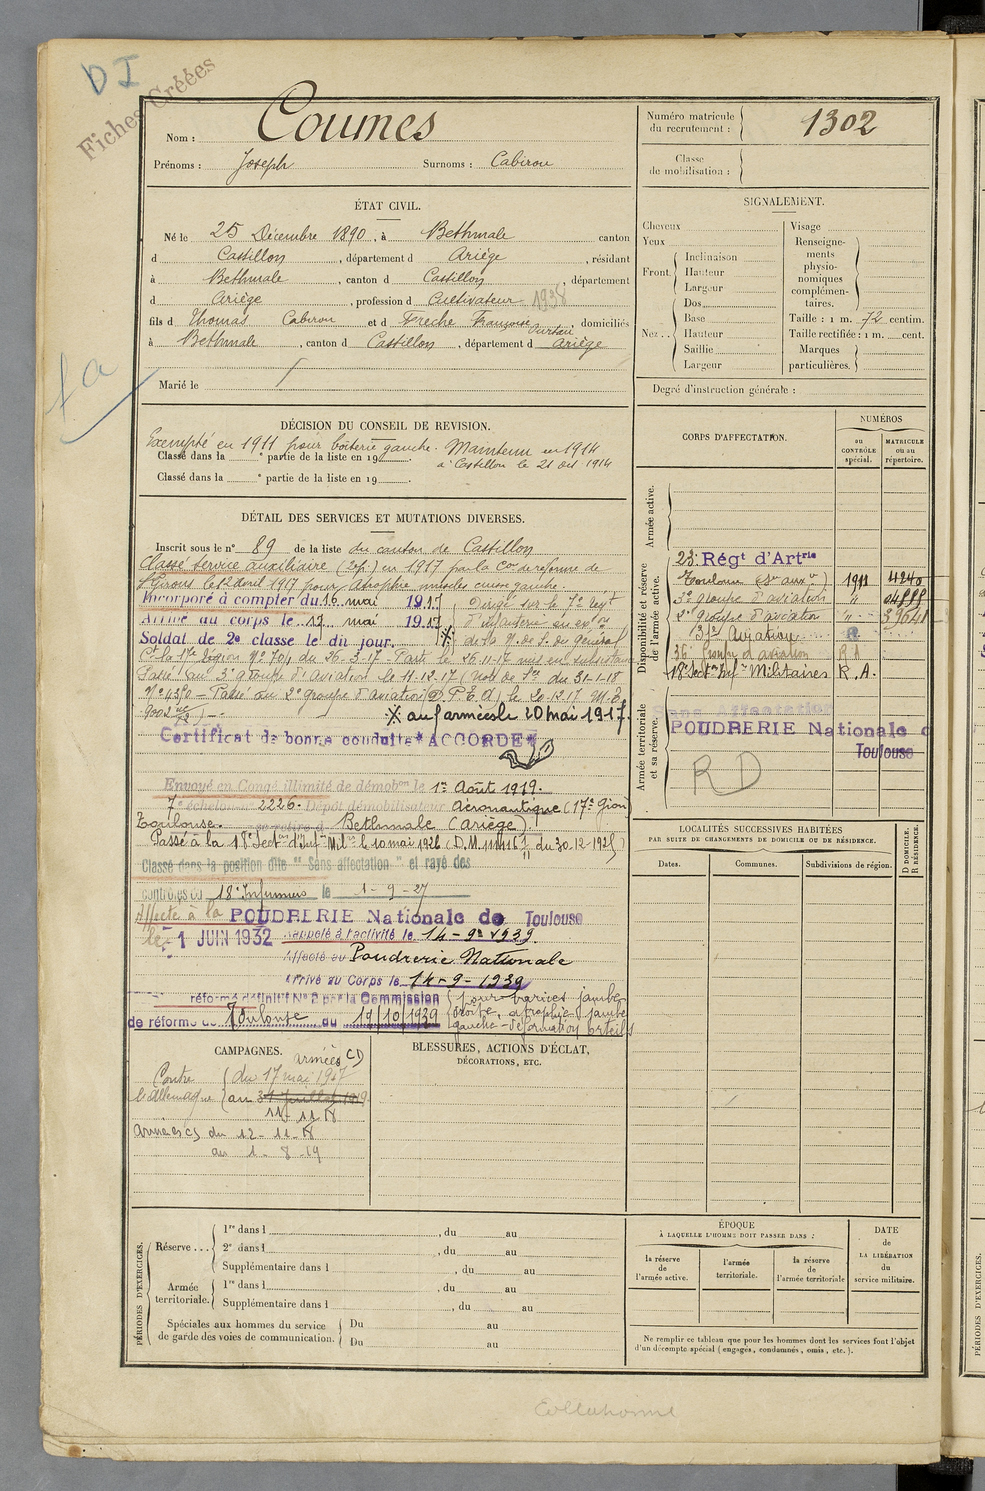 DI
Fiches Créées
Nom : Coumes
Prénoms : Joseph Surnoms : Cabirou
Numéro matricule du recrutement : 1302
Classe de mobilisation :
ÉTAT CIVIL.
Né le 25 Décembre 1890, à Bethmale canton
d Castillon, département d Ariège, résidant
à Bethmale, canton d Castillon, département
d Ariège, profession d Cultivateur 1938
fils d Thomas Cabirou et d Dreche Françoise, domiciliés
à Bethmale, canton d Castillon, département d Ariège
Marié le
SIGNALEMENT.
Cheveux
Yeux
Front. Inclinaison
Hauteur
Largeur
Nez.. Dos
Base
Hauteur
Saillie
Largeur
Visage
Renseignements physionomiques complémentaires.
Taille : 1 m. 72 centim.
Taille rectifiée : 1 m. cent.
Marques particulières.
Degré d'instruction générale :
DÉCISION DU CONSEIL DE REVISION.
Exempté en 1911 pour boiterie gauche. Maintenu en 1914
Classé dans la e partie de la liste en 19 .
à Castillon le 21 oct 1914
Classé dans la e partie de la liste en 19 .
DÉTAIL DES SERVICES ET MUTATIONS DIVERSES.
Inscrit sous le n° 89 de la liste du canton de Castillon
Classé Service auxiliaire en 1917 par la Con de réforme de
St Girons le 12 avril 1917 pour Atrophie muscles cuisse gauche.
Incorporé à compter du 16 mai 1917, Dirigé sur le 7e
Arrivé au corps le 17 mai 1917 d'infanterie
Soldat de 2e classe le dit jour. de la N. de S. du Général
Ct la 17e région N° 704 du 26-3-17. Parti le 26-11-17 mis en subsistance
Passé au 3e groupe d'aviation le 11.12.17 (Note de du 31-1-18
N° 4370 – Passé au 2e groupe d'aviation le 20-12-17 M.E.
9002
aux armées le 20 mai 1917.
Certificat de bonne conduite "ACCORDÉ"
Envoyé en Congé illimité de démobon le 1er Août 1919.
7e échelon 2226. Dépôt démobilisateur Aéronautique (17e région)
Toulouse. se retire à Bethmale (Ariège).
Passé à la 18e Secton d'Infers Milres le 10 mai 1926 (D.M. du 30-12-1925)
Classé dans la position dite "Sans affectation" et rayé des
contrôles du 18e Infirmiers le 1-9-27
Affecté à la POUDRERIE Nationale de Toulouse
le 1 JUIN 1932 Rappelé à l'activité le 14-9-1939.
Affecté au Poudrerie Nationale
Arrivé au Corps le 14-9-1939
réformé définitif N° 2 par la Commission
de réforme de Toulouse du 19/10/1939
pour varices jambe
droite, atrophie jambe
gauche - déformation orteils
CORPS D'AFFECTATION.
NUMÉROS
au CONTRÔLE spécial.
MATRICULE ou au répertoire.
Armée active.
Disponibilité et réserve de l'armée active.
23e Régt d'Artrie
Toulouse (Sce auxre) 1911 4240
3e groupe d'aviation " 04555
2e groupe d'aviation " 39641
31e Aviation R
36e groupe d'aviation R A
18e Secton Infrs Militaires R.A.
Armée territoriale et sa réserve.
Sans Affectation
POUDRERIE Nationale d
Toulouse
RD
LOCALITÉS SUCCESSIVES HABITÉES
PAR SUITE DE CHANGEMENTS DE DOMICILE OU DE RÉSIDENCE.
Dates.
Communes.
Subdivisions de région.
D DOMICILE. R RÉSIDENCE.
CAMPAGNES.
Contre l'Allemagne
armées CD
du 17 mai 1917
au 31 Juillet 1919
11-11-18
Armées CS du 12-11-18
au 1-8-19
BLESSURES, ACTIONS D'ÉCLAT,
DÉCORATIONS, ETC.
PÉRIODES D'EXERCICES.
Réserve ...
1re dans l , du au
2e dans l , du au
Supplémentaire dans l , du au
Armée territoriale.
1re dans l , du au
Supplémentaire dans l , du au
Spéciales aux hommes du service de garde des voies de communication.
Du au
Du au
ÉPOQUE
À LAQUELLE L'HOMME DOIT PASSER DANS :
la réserve de l'armée active.
l'armée territoriale.
la réserve de l'armée territoriale
DATE de LA LIBÉRATION du service militaire.
Ne remplir ce tableau que pour les hommes dont les services font l'objet
d'un décompte spécial (engagés, condamnés, omis, etc.).
Collationné
PÉRIODES D'EXERCICES.